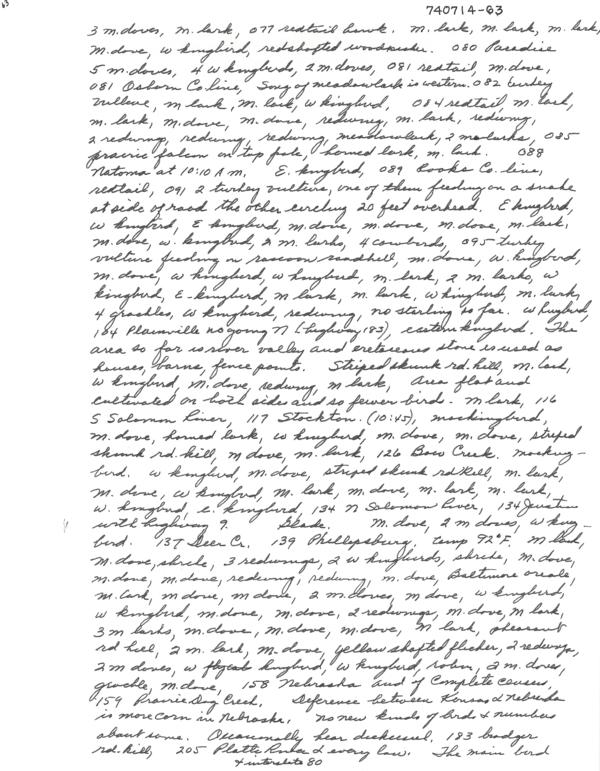 740714-63
3 m.doves, m. lark, 077 redtail hawk. m. lark, m. lark, m. lark,
m. dove, w kingbird, redshafted woodpecker. 080 Paradise
5 m.doves, 4 w kingbirds, 2 m.doves, 081 redtail, m.dove,
081 Osborn Co. line, Song of meadowlark is western. 082 turkey
vulture, m lark, m. lark, w kingbird, 084 redtail, m. lark,
m. lark, m.dove, m. dove, redwing, m. lark, redwing,
2 redwings, redwing, redwing, meadowlark, 2 m larks, 085
prairie falcon on top pole, horned lark, m. lark. 088
Natoma at 10:10 A.m. E. kingbird, 089 Rooks Co. line,
redtail, 091 2 turkey vulture, one of them feeding on a snake
at side of road the other circling 20 feet overhead. E kingbird,
w kingbird, E kingbird, m.dove, m.dove, m.dove, m. lark,
m.dove, w. kingbird, 2 m. larks, 4 cowbirds, 095 turkey
vulture feeding on raccoon roadkill, m.dove, w. kingbird,
m. dove, w kingbird, w kingbird, m. lark, 2 m. larks, w
kingbird, E-kingbird, m lark, m. lark, w kingbird, m. lark,
4 grackles, w kingbird, redwing, no starling so far. w kingbird,
104 Plainville no going N (highway 183), eastern kingbird. The
area so far is river valley and cretaceous stone is used as
houses, barns, fence points. Striped skunk rd. kill, m. lark,
w kingbird, m. dove, redwing m lark, area flat and
cultivated on both sides and so fewer bird. m lark, 116
S Solomon River, 117 Stockton. (10:45), mockingbird,
m. dove, horned lark, w kingbird, m. dove, m. dove, striped
skunk rd. kill, m dove, m. lark, 126 Bow Creek. mocking-
bird. w kingbird, m.dove, striped skunk rd kill, m. lark,
m. dove, w kingbird, m. lark, m. dove, m. lark, m. lark,
w. kingbird, e. kingbird, 134 N Solomon River, 134 Junction
with highway 9. Glade. m. dove, 2 m doves, w king-
bird. 137 Deer Cr. 139 Phillipsburg, temp 92°F. m lark,
m.dove, shrike, 3 redwings, 2 w kingbirds, shrike, m.dove,
m.dove, m.dove, redwing, redwing, m. dove, Baltimore oriole,
m. lark, m dove, m dove, 2 m.doves, m dove, w kingbird,
w kingbird, m.dove, m.dove, 2 redwings, m.dove, m lark,
3 m larks, m.dove, m.dove, m.dove, m lark, pheasant
rd kill, 2 m. lark, m. dove, yellow shafted flicker, 2 redwings,
2 m doves, w kingbird, w kingbird, robin, 2 m. doves,
grackle, m.dove, 158 Nebraska end of Complete census,
159 Prairie Dog Creek. Deference between Kansas & Nebraska
is more corn in Nebraska. no new kinds of birds & numbers
about same. Occasionally hear dickcissel. 183 badger
rd. kill, 205 Platte River & every law. The main bird
& interstate 80